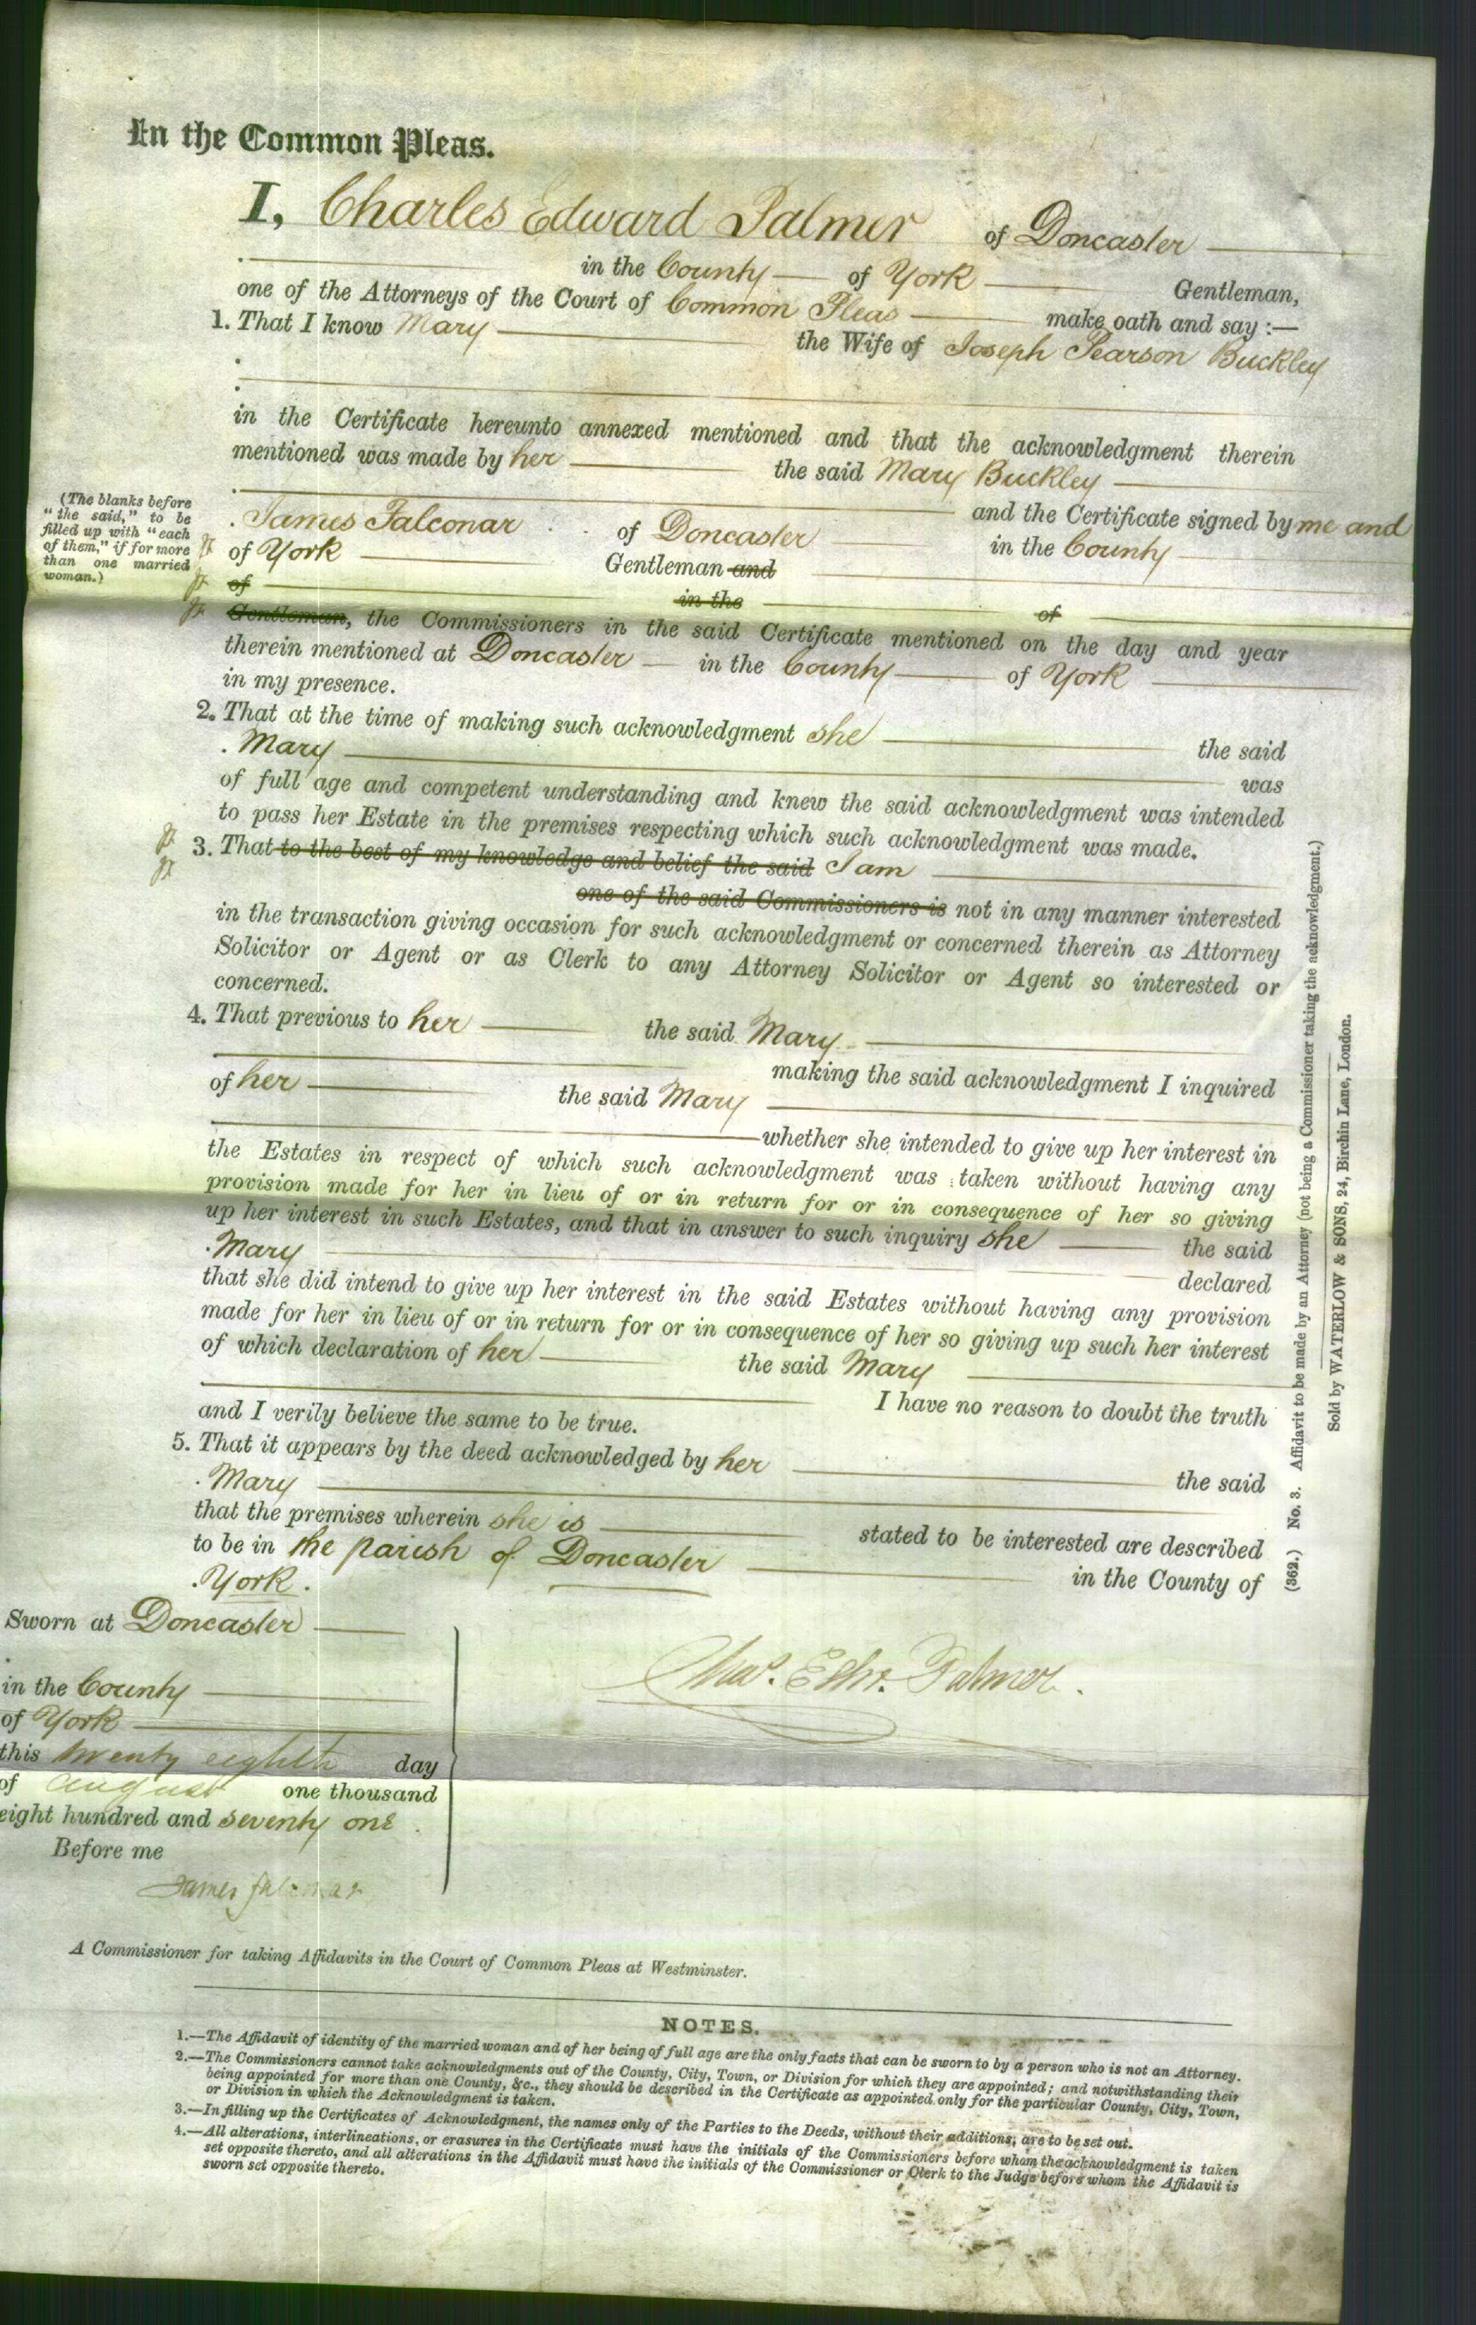 In the Common Pleas.
I, Charles Edward Palmer of Doncaster
in the County of York Gentleman,
one of the Attorneys of the Court of Common Pleas make oath and say :—
1. That I know Mary the Wife of Joseph Pearson Buckley
in the Certificate hereunto annexed mentioned and that the acknowledgment therein
mentioned was made by her the said Mary Buckley
and the Certificate signed by me and
(The blanks before
"the said," to be
filled up with "each
of them," if for more
than one married
woman.)
James Falconar of Doncaster in the County
of York Gentleman and
of in the of
Gentleman, the Commissioners in the said Certificate mentioned on the day and year
therein mentioned at Doncaster in the County of York
in my presence.
2. That at the time of making such acknowledgment she the said
Mary was
of full age and competent understanding and knew the said acknowledgment was intended
to pass her Estate in the premises respecting which such acknowledgment was made.
3. That to the best of my knowledge and belief the said I am
one of the said Commissioners is not in any manner interested
in the transaction giving occasion for such acknowledgment or concerned therein as Attorney
Solicitor or Agent or as Clerk to any Attorney Solicitor or Agent so interested or
concerned.
4. That previous to her the said Mary
making the said acknowledgment I inquired
of her the said Mary
whether she intended to give up her interest in
the Estates in respect of which such acknowledgment was taken without having any
provision made for her in lieu of or in return for or in consequence of her so giving
up her interest in such Estates, and that in answer to such inquiry she the said
Mary declared
that she did intend to give up her interest in the said Estates without having any provision
made for her in lieu of or in return for or in consequence of her so giving up such her interest
of which declaration of her the said Mary
I have no reason to doubt the truth
and I verily believe the same to be true.
5. That it appears by the deed acknowledged by her the said
Mary
that the premises wherein she is stated to be interested are described
to be in the parish of Doncaster in the County of
York.
Sworn at Doncaster
in the County
of York
this twenty eighth day
of August one thousand
eight hundred and seventy one
Before me
James Falconar
Chas. Edwd. Palmer.
A Commissioner for taking Affidavits in the Court of Common Pleas at Westminster.
NOTES.
1.—The Affidavit of identity of the married woman and of her being of full age are the only facts that can be sworn to by a person who is not an Attorney.
2.—The Commissioners cannot take acknowledgments out of the County, City, Town, or Division for which they are appointed; and notwithstanding their
being appointed for more than one County, &c., they should be described in the Certificate as appointed only for the particular County, City, Town,
or Division in which the Acknowledgment is taken.
3.—In filling up the Certificates of Acknowledgment, the names only of the Parties to the Deeds, without their additions, are to be set out.
4.—All alterations, interlineations, or erasures in the Certificate must have the initials of the Commissioners before whom the acknowledgment is taken
set opposite thereto, and all alterations in the Affidavit must have the initials of the Commissioner or Clerk to the Judge before whom the Affidavit is
sworn set opposite thereto.
(362.) No. 3. Affidavit to be made by an Attorney (not being a Commissioner taking the acknowledgment.)
Sold by WATERLOW & SONS, 24, Birchin Lane, London.